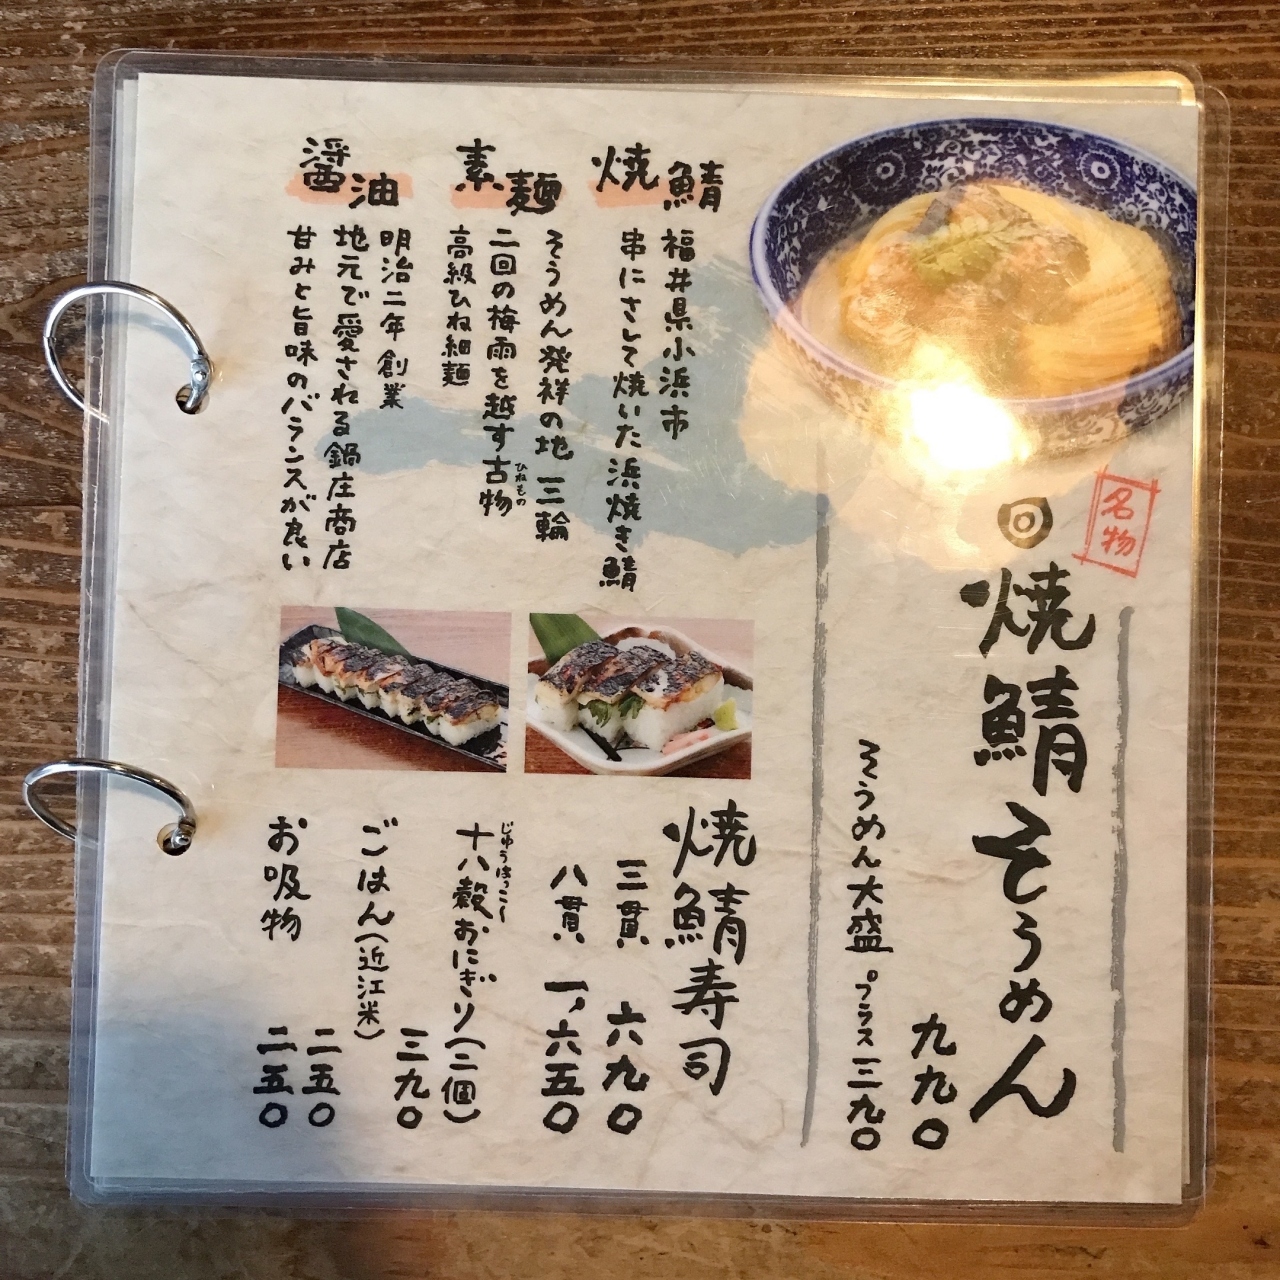 名物
焼鯖そうめん
九九〇
そうめん大盛 プラス三九〇
焼鯖
福井県小浜市
串にさして焼いた浜焼き鯖
素麺
そうめん発祥の地 三輪
二回の梅雨を越す古物
ひねもの
高級ひね細麺
醤油
明治二年創業
地元で愛される鍋庄商店
甘みと旨味のバランスが良い
焼鯖寿司
三貫 六九〇
八貫 一、六五〇
じゅうはっこく
十八穀おにぎり(二個)
三九〇
ごはん(近江米)
二五〇
お吸物 二五〇